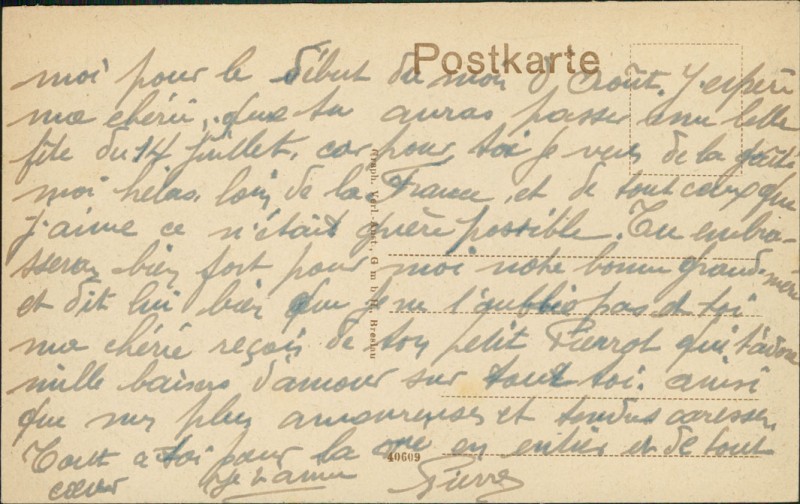 Postkarte
moi pour le début du mois d'Août. J'espère
ma chérie, que tu auras passer une belle
fête du 14 juillet, car pour toi je veux de la gaîté
moi hélas loin de la France, et de tout ceux que
j'aime ce n'était guère possible. Tu embra-
sseras bien fort pour moi notre bonne grand-mère
et dit lui bien que je ne l'oublie pas et toi
ma chérie reçois de ton petit Pierrot qui t'adore
mille baisers d'amour sur tout toi. ainsi
que mes plus amoureuses et tendres caresses.
Tout a toi pour la vie en entier et de tout
cœur Je t'aime Pierre
Graph. Verl.-Anst., G m b H. Breslau
40609